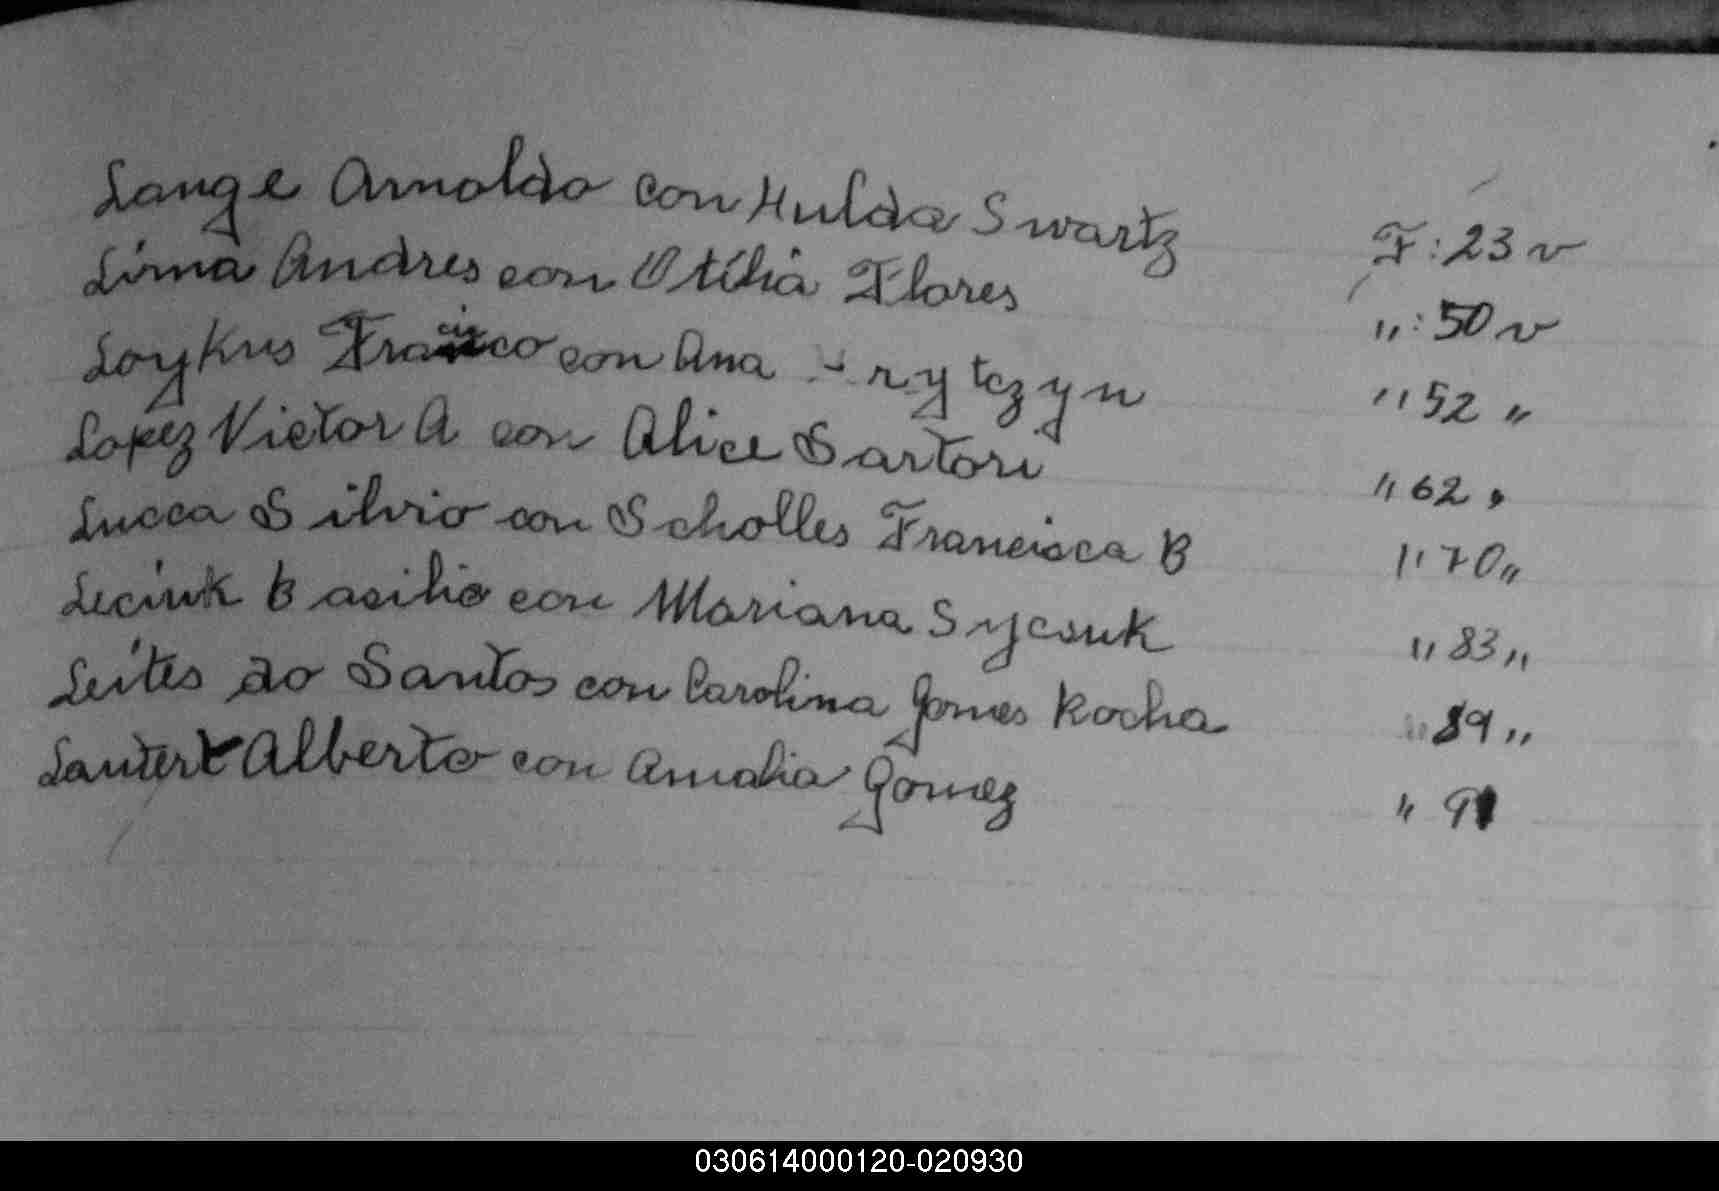 Lange Arnoldo con Hulda Swartz F: 23 v
Lima Andres con Otilia Flores „: 50 v
Loykus Francisco con Ana „ 52 „
Lopez Victor A con Alice Sartori „ 62 „
Lucca Silvio con Scholles Francisca B „ 70 „
Leciuk Basilio con Mariana Sycsuk „ 83 „
Leites do Santos con Carolina Gomes Rocha „ 89 „
Lautert Alberto con Amalia Gomez „ 91
030614000120-020930